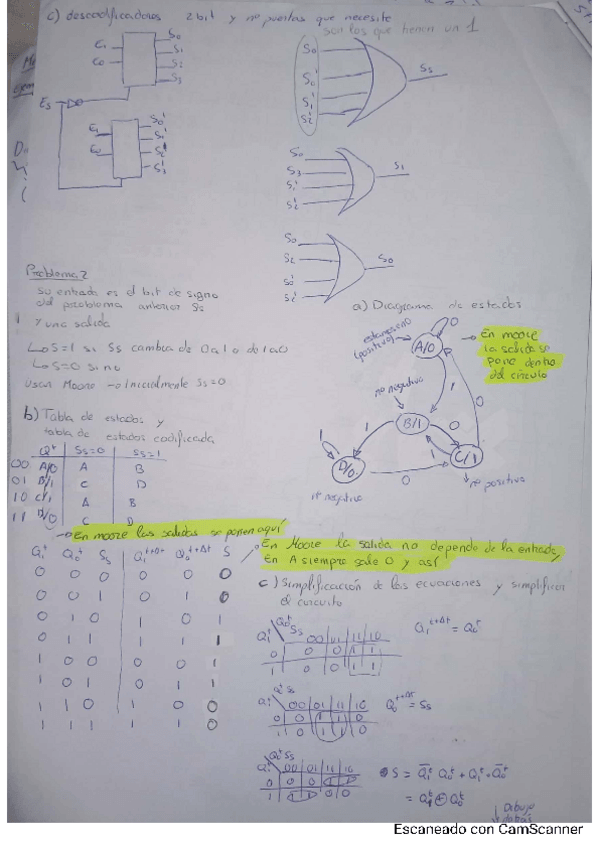 c) descodificadores 2 bit y nº puertas que necesite
son los que tienen un 1
E1
E0
S0
S1
S2
S3
Es
E1
E0
S0'
S1'
S2'
S3'
S0
S0'
S1'
S2'
Ss
S0
S3
S1'
S2'
S1
S0
S2
S0'
S2'
S0
Problema 2
su entrada es el bit de signo
del problema anterior Ss
y una salida
↳ S=1 si Ss cambia de 0 a 1 o de 1 a 0
↳ S=0 si no
Usar Moore → inicialmente Ss=0
a) Diagrama de estados
(positivo)
A/0
0
→ En moore
la salida se
pone dentro
del círculo
1
0
nº negativo
B/1
0
C/1
1
1
1
D/0
0
nº negativo
nº positivo
b) Tabla de estados y
tabla de estados codificada
Qt Ss=0 Ss=1
00 A/0 A B
01 B/1 C D
10 C/1 A B
11 D/0 C D
→ En moore las salidas se ponen aquí
Q1t Q0t Ss Q1t+Δt Q0t+Δt S
0 0 0 0 0 0
0 0 1 0 1 0
0 1 0 1 0 1
0 1 1 1 1 1
1 0 0 0 0 1
1 0 1 0 1 1
1 1 0 1 0 0
1 1 1 1 1 0
En Moore la salida no depende de la entrada,
En A siempre sale 0 y así
c) Simplificación de las ecuaciones y simplificar
el circuito
Q1t Q0t Ss 00 01 11 10
0 0 0 1 1
1 0 0 1 1
Q1t+Δt = Q0t
Q1t Q0t Ss 00 01 11 10
0 0 1 1 0
1 0 1 1 0
Q0t+Δt = Ss
Q1t Q0t Ss 00 01 11 10
0 0 0 1 1
1 1 1 0 0
S = Q̄1t Q0t + Q1t · Q̄0t
= Q1t ⊕ Q0t
Dibujo
detrás
Escaneado con CamScanner